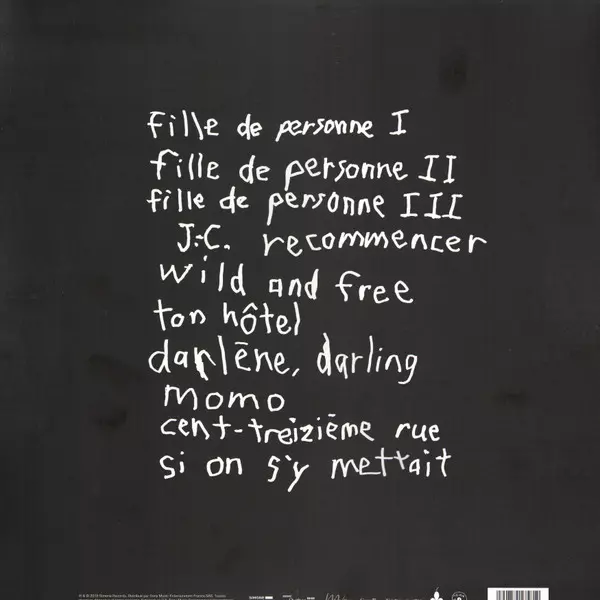 fille de personne I
fille de personne II
fille de personne III
J.-C. recommencer
wild and free
ton hôtel
darlène, darling
momo
cent-treizième rue
si on s'y mettait